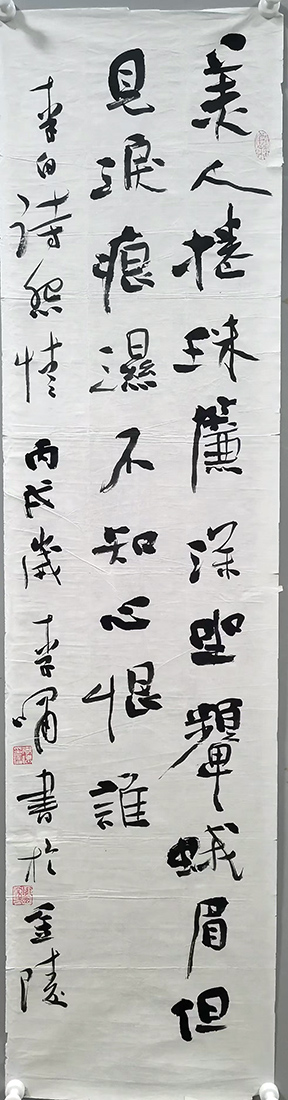 美人捲珠簾深坐顰蛾眉但
見淚痕濕不知心恨誰
李白詩怨情丙戌歲李嘯書於金陵